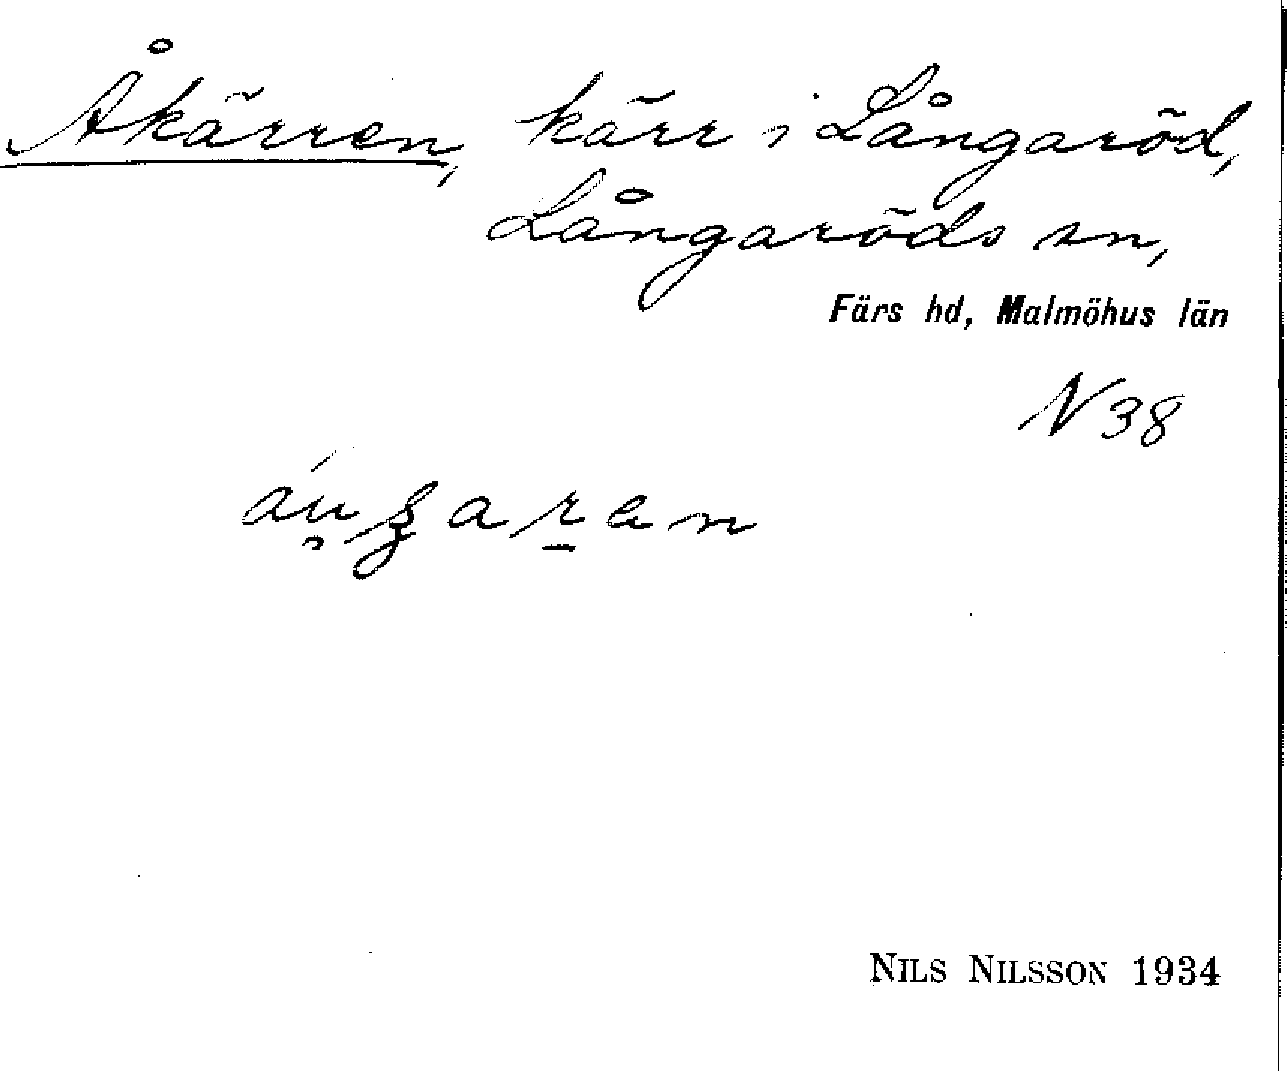 Åkärren, kärr i Långaröd,
Långaröds sn,
Färs hd, Malmöhus län
N 38
NILS NILSSON 1934